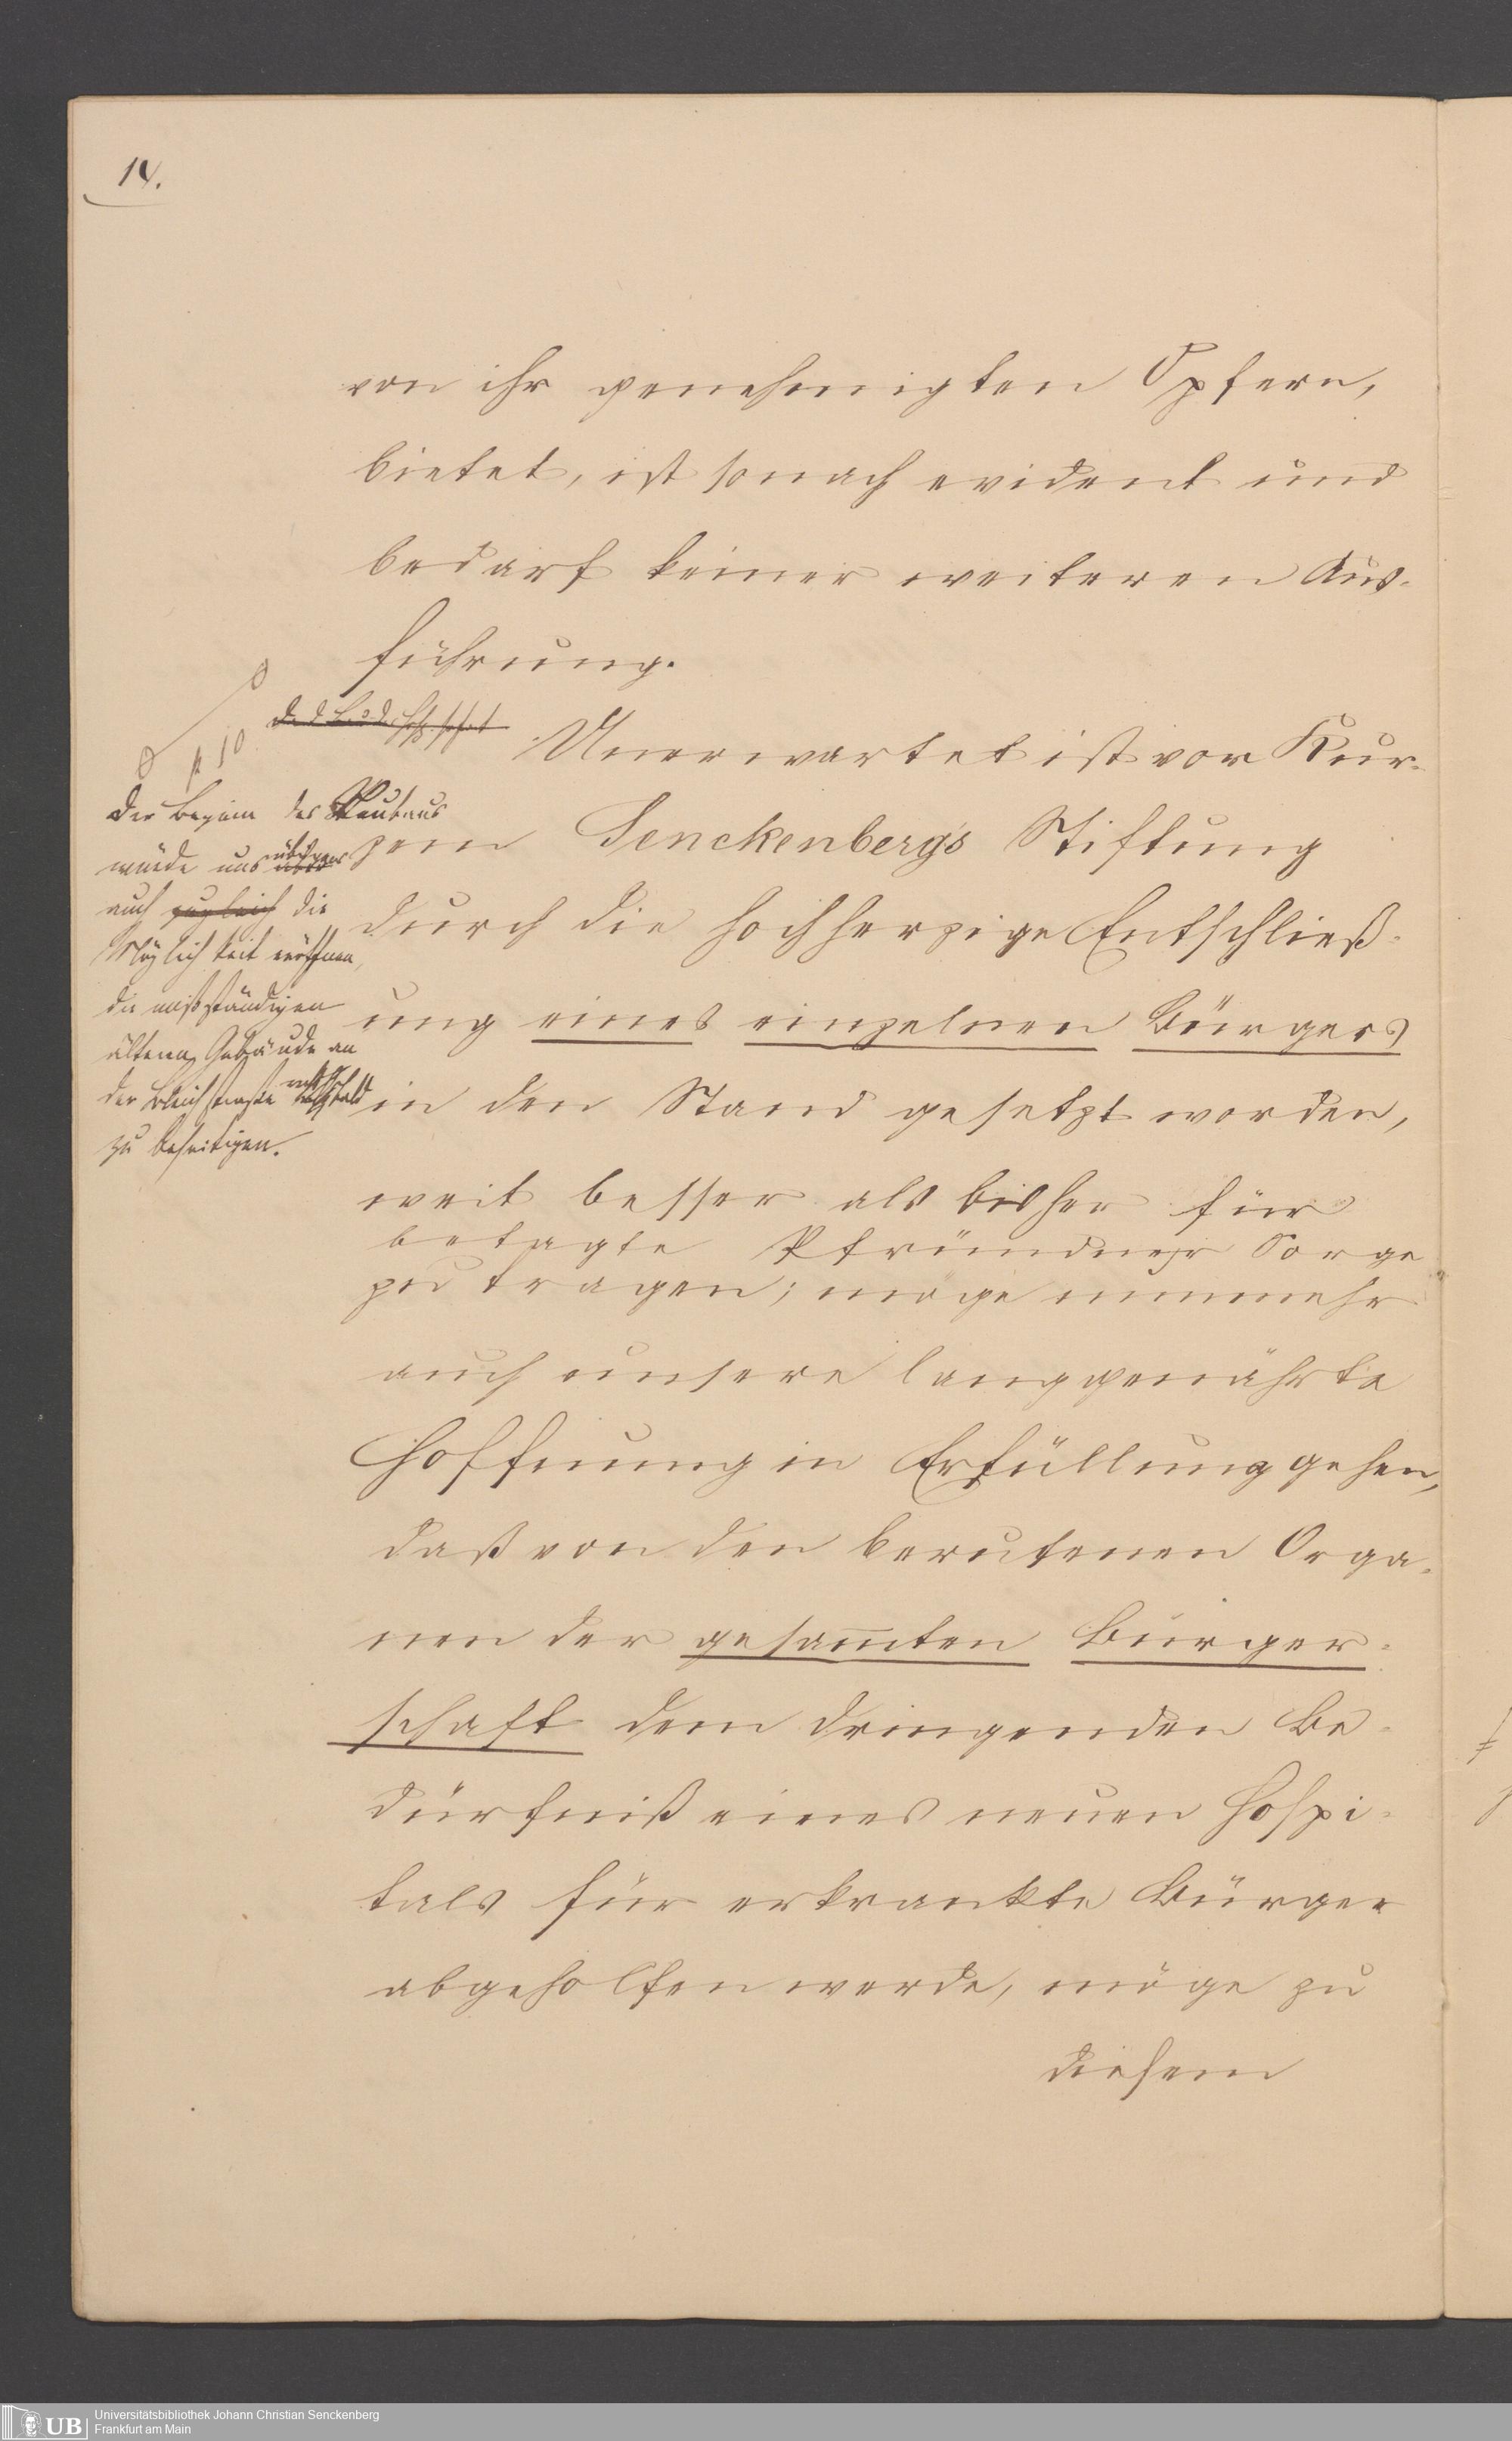 14.
von ihr genehmigten Opfern,
bietet, ist sonach evident und
bedarf keiner weiteren Aus-
führung.
Unerwartet ist vor Kur-
zem Senckenberg's Stiftung
durch die hochherzige Entschließ-
ung eines einzelnen Bürgers
in den Stand gesetzt worden,
weit besser als bisher für
betagte Pfründner Sorge
zu tragen; möge nunmehr
auch unsere langgenährte
Hoffnung in Erfüllung gehen,
daß von den berufenen Orga-
nen der gesam̄ten Bürger-
schaft dem dringenden Be-
dürfniß eines neuen Hospi-
tals für erkrankte Bürger
abgeholfen werde, möge zu
diesem
p 10
Der Beginn des Neubaus
würde uns übrigens
auch zugleich die
Möglichkeit eröffnen,
die mißständigen
älteren Gebäude an
der Bleichstraße
zu beseitigen.
UB Universitätsbibliothek Johann Christian Senckenberg
Frankfurt am Main